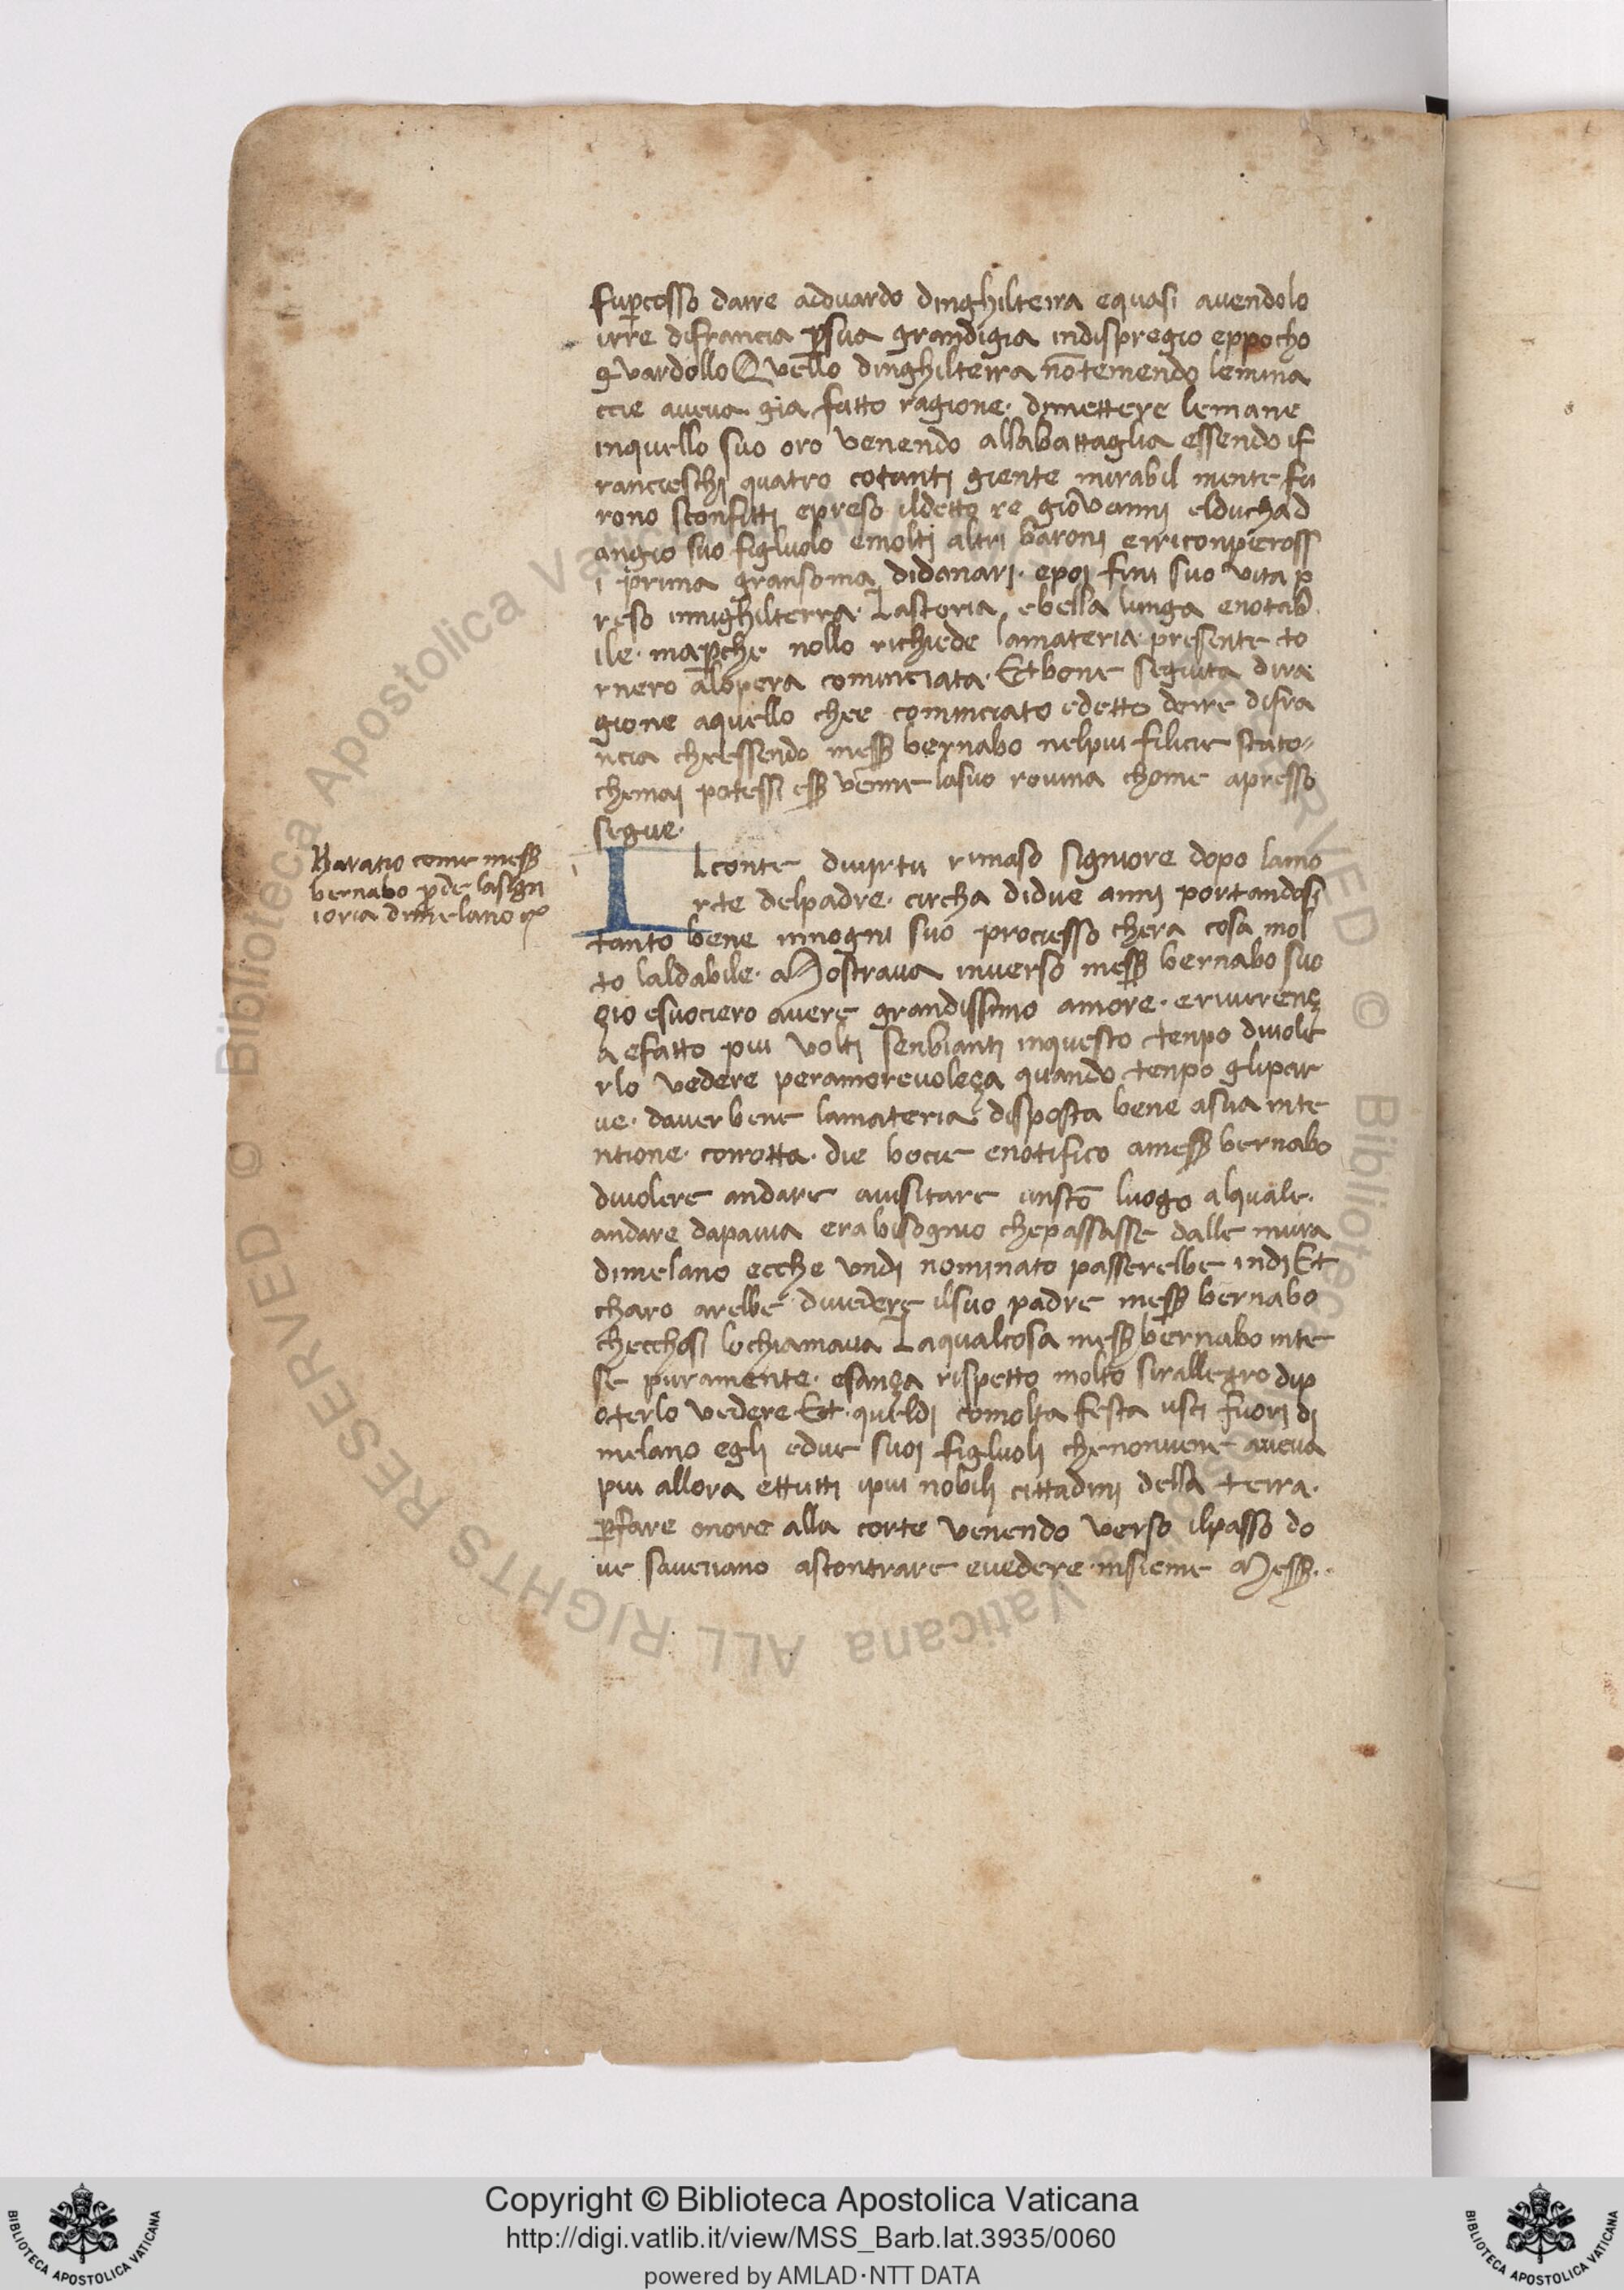 fup̱cosso darre adouardo dinghilterra equasi auendolo
irre difrancia p̱sua grandigia indispregio eppocho
gvardollo Qvello dinghilterra nō temendo lemina
ccie aueua gia fatto ragione· dimettere lemane
inquello suo oro venendo allabattaglia essendo if
rancieschi quatro cotanti giente mirabil mente fu
rono sconfitti epreso ildetto re giovanni elduchad
angio suo figluolo emolti altri baroni erriconpeross
i prima gransoma didanari· epoi fini suo vita p
reso innighilterra· Lastoria ebella lunga enotab
ile· map̱che nollo richiede lamateria presente to
rnero alopera cominciata· Et bene seguita dira
gione aquello chee cominciato edetto derre difra
ncia cheessendo mess̱ bernabo nelpiu filicie stato
chemai potessi ess̱ venne lasuo rouina chome apresso
segue·
Baratto come mess̱
bernabo p̱de lasign
ioria dimelano
ILconte diuirtu rimaso signiore dopo lamo
rte delpadre· circha didue anni portandosi
tanto bene innogni suo prociesso chera cosa mol
to laldabile· Mostraua inuerso mess̱ bernabo suo
çio esuociero auere grandissimo amore· eriuirenç
a efatto piu volti senbianti inquesto tenpo diuole
rlo vedere peramoreuoleça quando tenpo glipar
ue· dauer bene lamateria disposta bene asua inte
ntione· corrotta· die bocie enotifico amess̱ bernabo
diuolere andare auisitare unsc̄o luogo alquale·
andare dapauia era bisognio chepassasse dalle mura
dimelano ecche undi nominato passerebbe indi Et
charo arebbe diuedere ilsuo padre mess̱ bernabo
checchosi lochiamaua Laqualcosa mess̱ bernabo inte
se puramente· esança rispetto molto sirallegro dip
oterlo vedere Et· queldi comolta festa usci fuori di
melano egli edue suoi figluoli chenonuene aueua
piu allora ettutti ipiu nobili cittadini della terra·
p̱fare onore alla corte venendo verso ilpasso do
ue saueuano ascontrare euedere insieme Mess̱·
Copyright © Biblioteca Apostolica Vaticana
http://digi.vatlib.it/view/MSS_Barb.lat.3935/0060
powered by AMLAD·NTT DATA
BIBLIOTECA APOSTOLICA VATICANA
BIBLIOTECA APOSTOLICA VATICANA
© Biblioteca Apostolica Vaticana ALL RIGHTS RESERVED